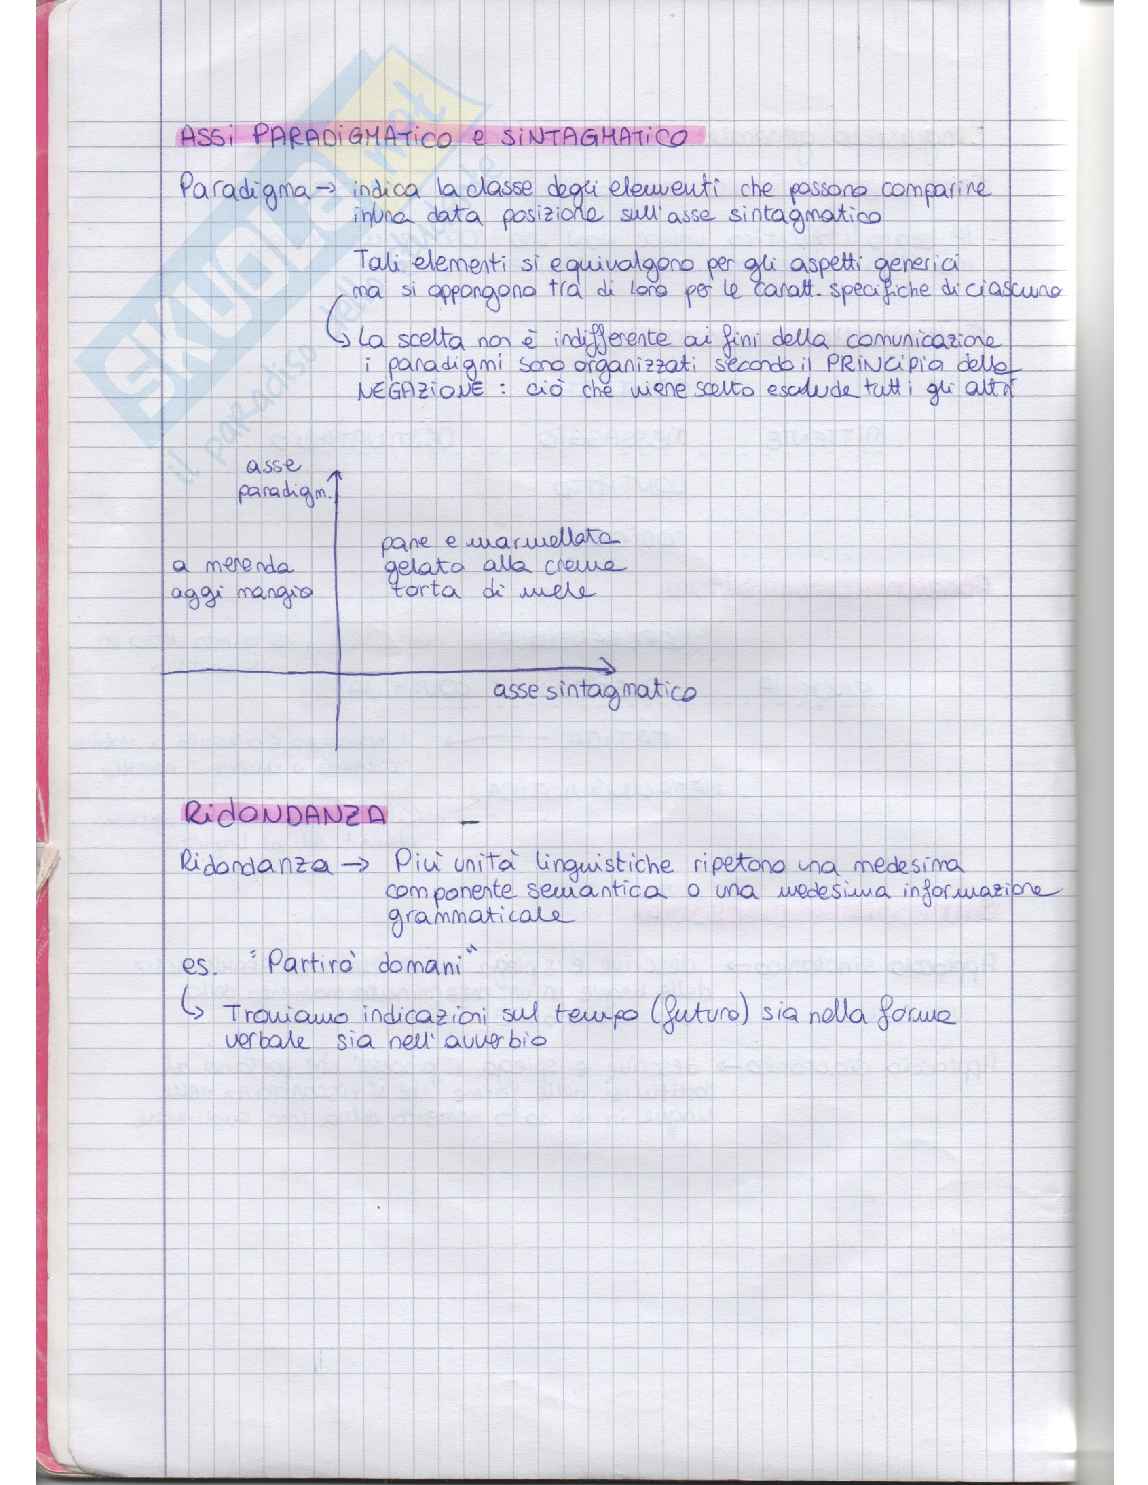 ASSI PARADIGMATICO e SINTAGMATICO
Paradigma → indica la classe degli elementi che possono comparire
in una data posizione sull'asse sintagmatico
Tali elementi si equivalgono per gli aspetti generici
ma si oppongono tra di loro per le caratt. specifiche di ciascuno
↳ La scelta non è indifferente ai fini della comunicazione
i paradigmi sono organizzati secondo il PRINCIPIO della
NEGAZIONE: ciò che viene scelto esclude tutti gli altri
asse
paradigm.
pane e marmellata
a merenda gelato alla crema
oggi mangio torta di mele
asse sintagmatico
RIDONDANZA
Ridondanza → Più unità linguistiche ripetono una medesima
componente semantica o una medesima informazione
grammaticale
es. "Partirò domani"
↳ Troviamo indicazioni sul tempo (futuro) sia nella forma
verbale sia nell'avverbio
SKUOLA.net
il paradiso dello studente